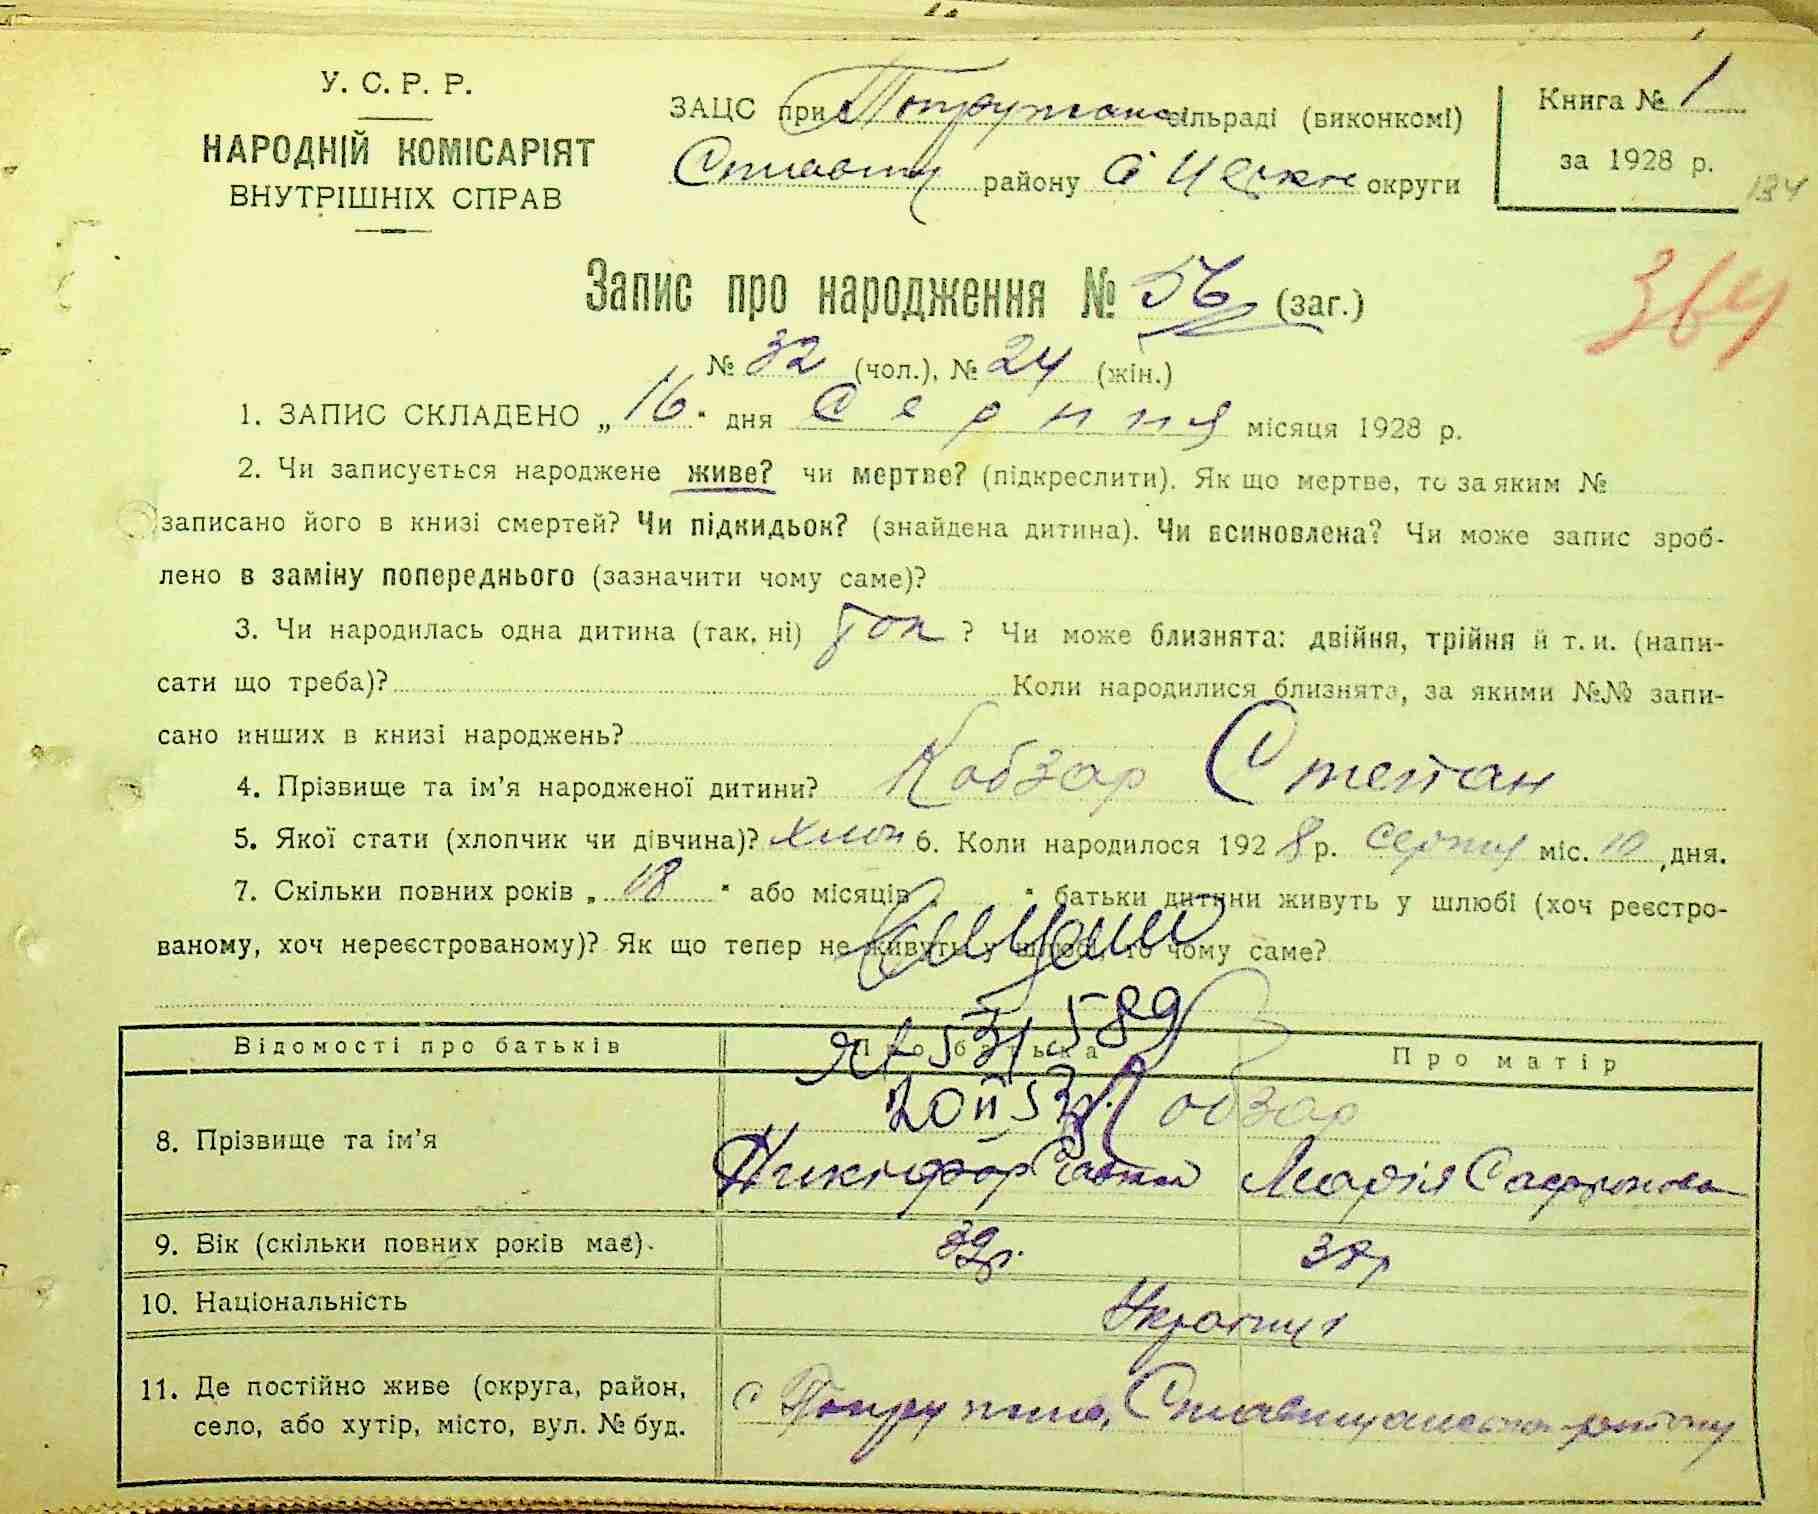 У. С. Р. Р.
НАРОДНІЙ КОМІСАРІЯТ
ВНУТРІШНІХ СПРАВ
ЗАЦС при сільраді (виконкомі)
району округи
Книга № 1
за 1928 р.
134
364
Запис про народження № 56 (заг.)
№ 32 (чол.), № 24 (жін.)
1. ЗАПИС СКЛАДЕНО „ 16 " дня Серпня місяця 1928 р.
2. Чи записується народжене живе? чи мертве? (підкреслити). Як що мертве, то за яким №
записано його в книзі смертей? Чи підкидьок? (знайдена дитина). Чи всиновлена? Чи може запис зроб-
лено в заміну попереднього (зазначити чому саме)?
3. Чи народилась одна дитина (так, ні) так ? Чи може близнята: двійня, трійня й т. и. (напи-
сати що треба)? Коли народилися близнята, за якими №№ запи-
сано инших в книзі народжень?
4. Прізвище та ім'я народженої дитини? Кобзар Степан
5. Якої стати (хлопчик чи дівчина)? хлоп 6. Коли народилося 192 8 р. серпня міс. 10 , дня.
7. Скільки повних років „ 18 " або місяців " батьки дитини живуть у шлюбі (хоч реєстро-
ваному, хоч нереєстрованому)? Як що тепер не живуть у шлюбі, то чому саме?
531589
Відомості про батьків Про батька Про матір
8. Прізвище та ім'я Кобзар
Никифор Савин Марія Сафронова
9. Вік (скільки повних років має). 39р. 37р
10. Національність Українці
11. Де постійно живе (округа, район,
село, або хутір, місто, вул. № буд.
с Попружна, Ставищанського району